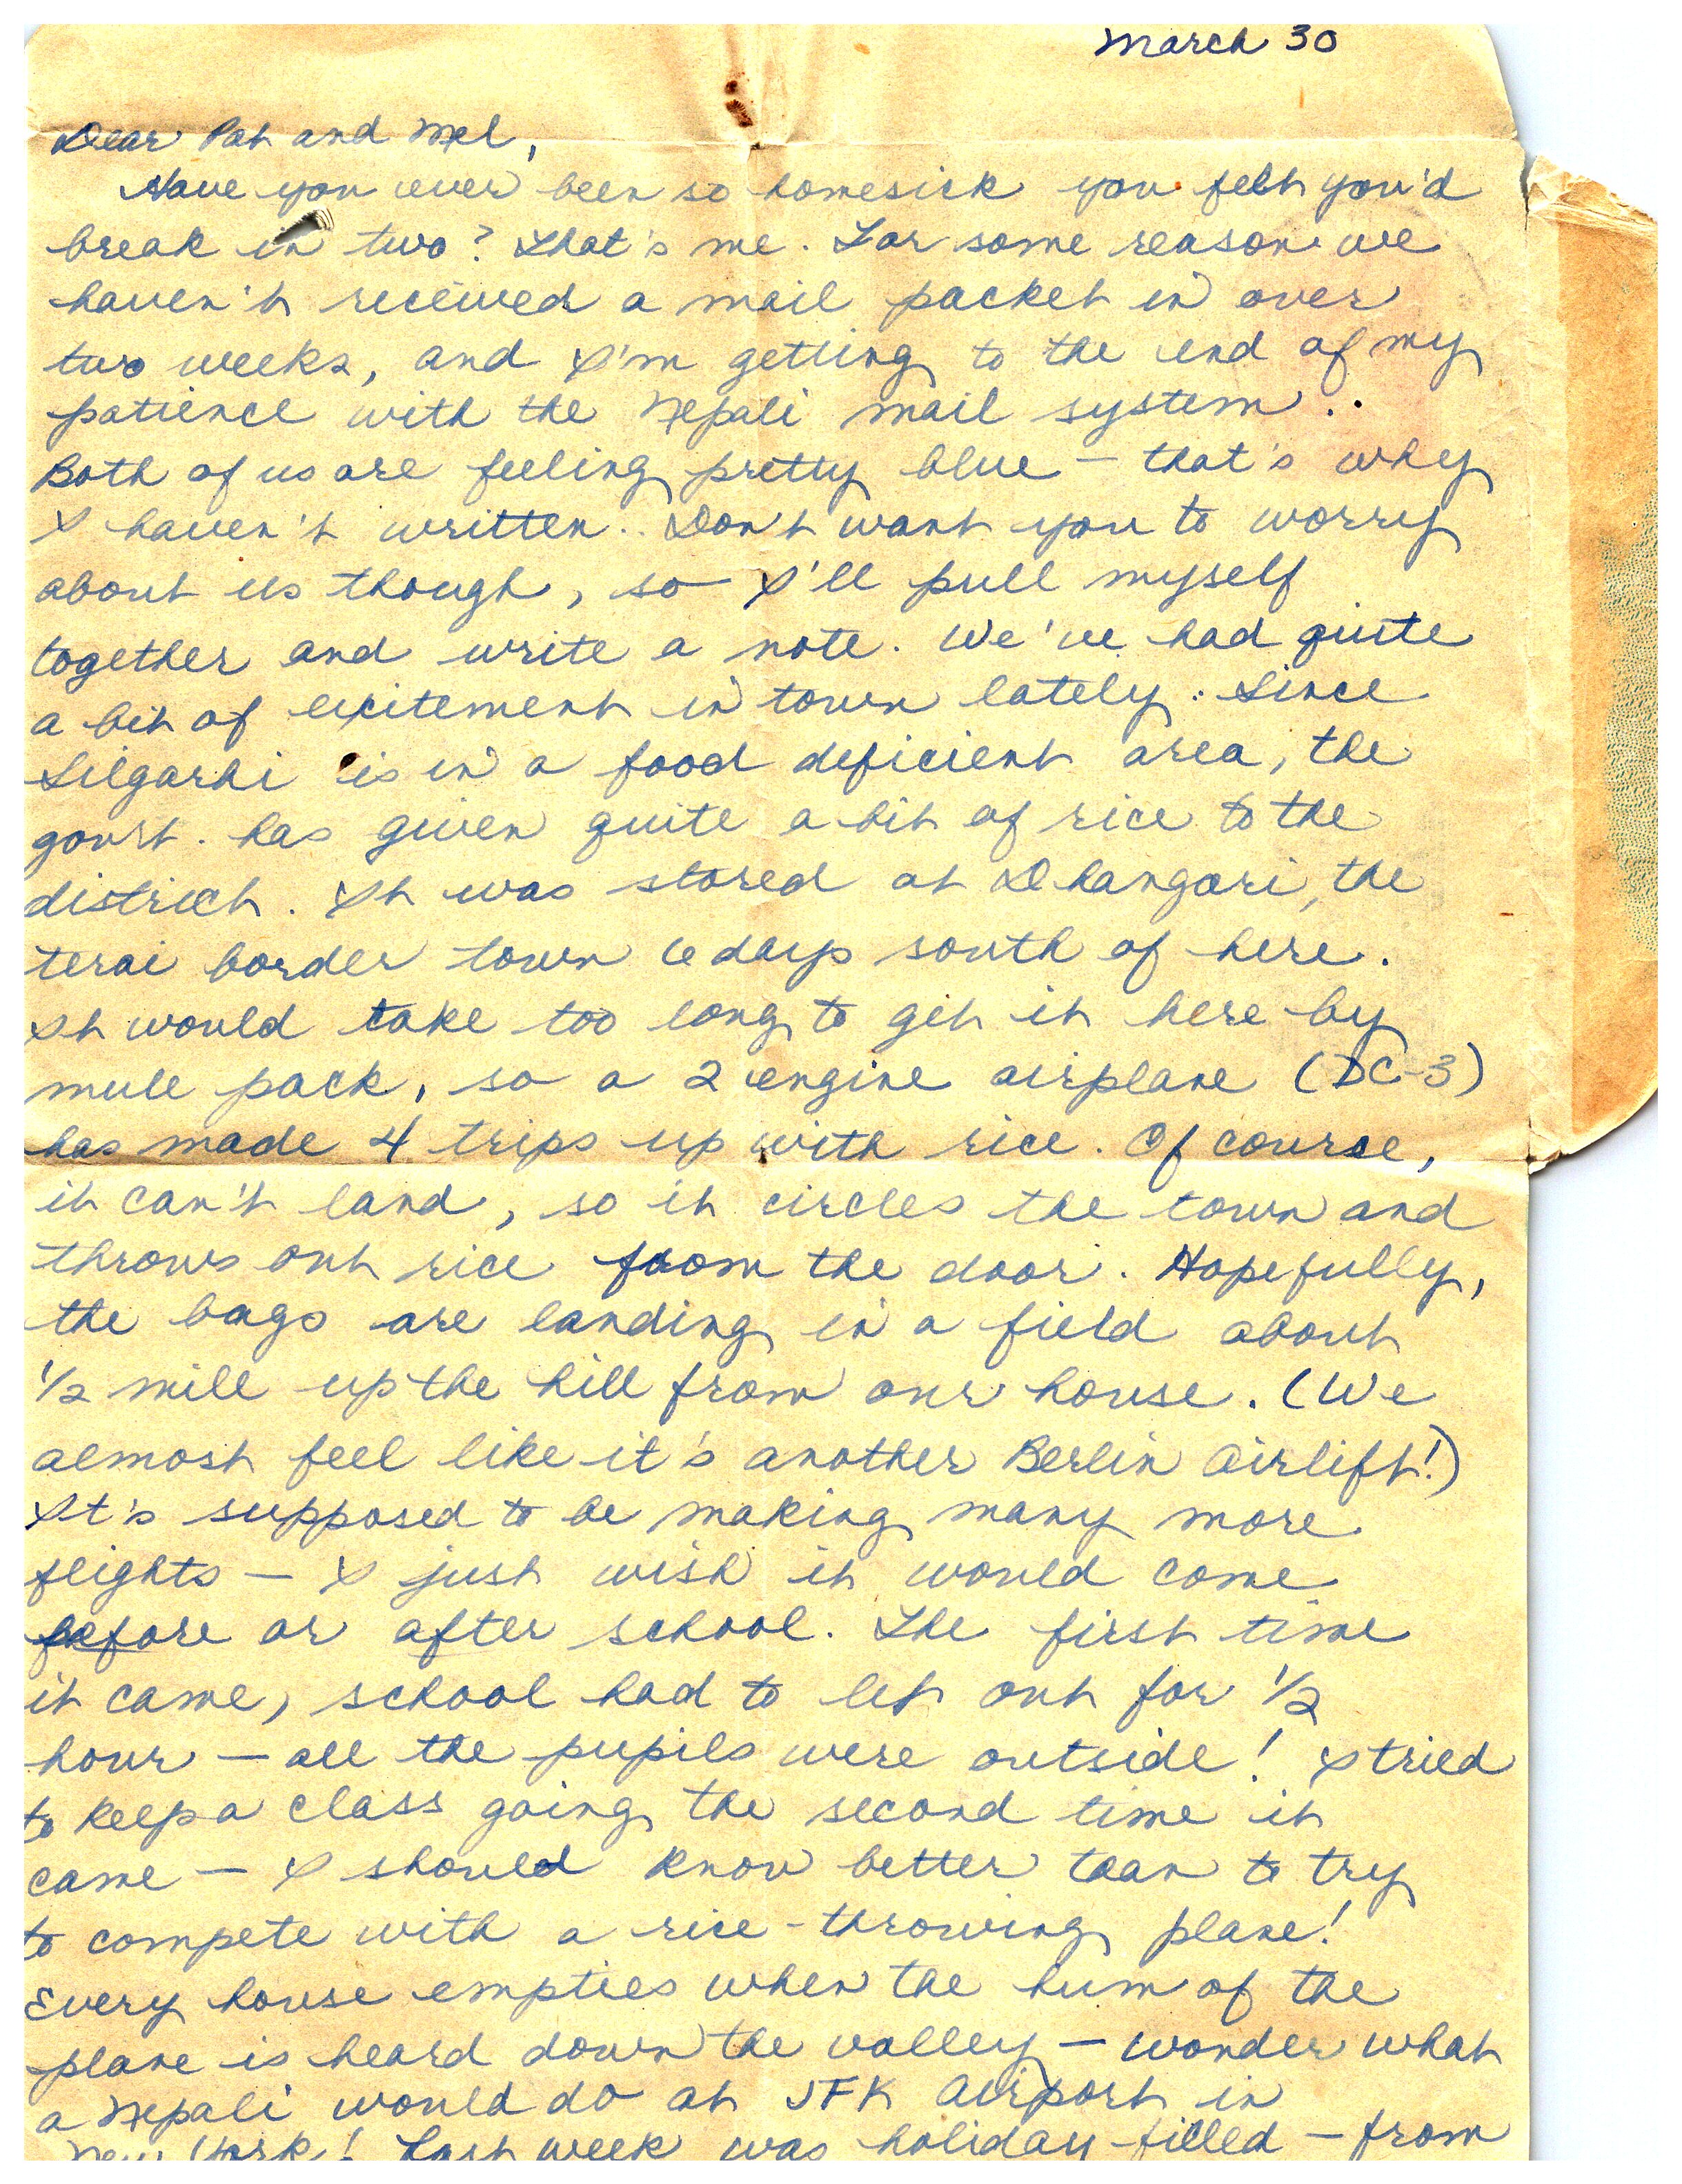 March 30
Dear Pat and Mel,
Have you ever been so homesick you felt you'd
break in two? That's me. For some reason we
haven't received a mail packet in over
two weeks, and I'm getting to the end of my
patience with the Nepali mail system..
Both of us are feeling pretty blue – that's why
I haven't written.. Don't want you to worry
about us though, so I'll pull myself
together and write a note. We've had quite
a bit of excitement in town lately. Since
Silgarhi is in a food deficient area, the
govt. has given quite a bit of rice to the
district. It was stored at Dhangari, the
terai border town 6 days south of here.
It would take too long to get it here by
mule pack, so a 2 engine airplane (DC-3)
has made 4 trips up with rice. Of course,
it can't land, so it circles the town and
throws out rice from the door. Hopefully,
the bags are landing in a field about
1/2 mile up the hill from our house. (We
almost feel like it's another Berlin airlift!)
It's supposed to be making many more
flights – I just wish it would come
before or after school. The first time
it came, school had to let out for 1/2
hour – all the pupils were outside! I tried
to keep a class going the second time it
came – I should know better than to try
to compete with a rice-throwing plane!
Every house empties when the hum of the
plane is heard down the valley – wonder what
a Nepali would do at JFK airport in
New York! Last week was holiday-filled – from